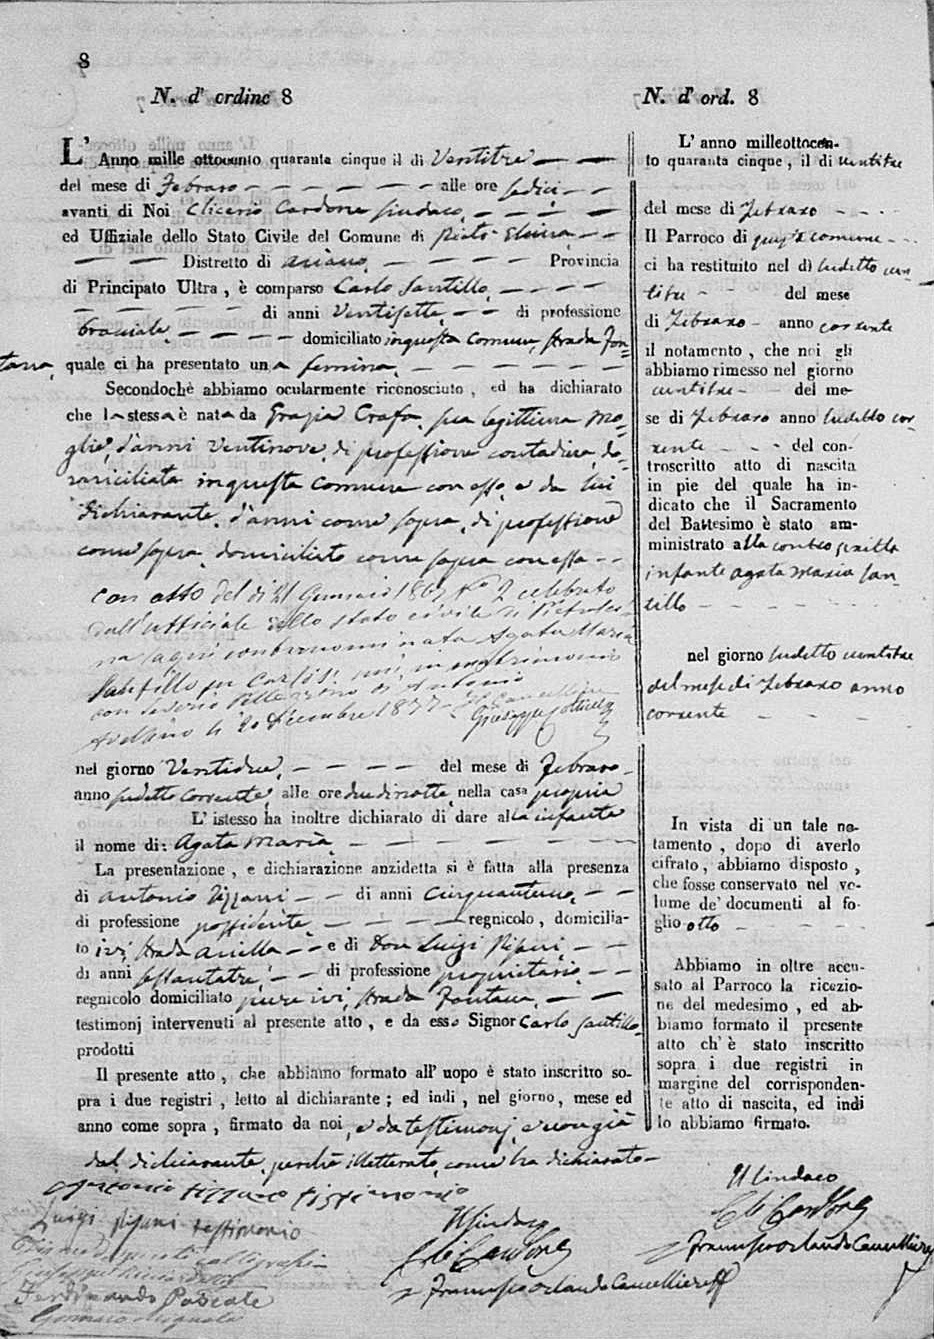 8
N. d' ordine 8
L' Anno mille ottocento quaranta cinque il di Ventitre
del mese di Febraro alle ore sedici
avanti di Noi Clicerio Cardone Sindaco
ed Uffiziale dello Stato Civile del Comune di
Distretto di Ariano Provincia
di Principato Ultra, è comparso Carlo Santillo
di anni Ventisette di professione
bracciale domiciliato in questa Comune, strada Fon=
tana, quale ci ha presentato una femina
Secondochè abbiamo ocularmente riconosciuto, ed ha dichiarato
che la stessa è nata da Grazia Crafa, sua legittima mo=
glie, d'anni Ventinove, di professione contadina, do=
miciliata in questa Comune con esso, e da lui
dichiarante, d'anni come sopra, di professione
come sopra, domiciliato come sopra con essa
Con atto del dì 21 Gennaio N° 2 celebrato
dall'ufficiale dello stato civile di
Agata Maria
Santillo fu Carlo si unì in matrimonio
con Pellegrino di Antonio
Avellino li 20 Dicembre 1877 Il Cancelliere
Giuseppe
nel giorno Ventidue del mese di Febraro
anno sudetto corrente, alle ore due di notte nella casa propria
L' istesso ha inoltre dichiarato di dare alla infante
il nome di: Agata Maria
La presentazione, e dichiarazione anzidetta si è fatta alla presenza
di Antonio Tizzani di anni Cinquantuno
di professione possidente regnicolo, domicilia-
to ivi, strada Aniella e di Don Luigi Pisani
di anni sessantatre di professione proprietario
regnicolo domiciliato pure ivi, strada Fontana
testimonj intervenuti al presente atto, e da esso Signor Carlo Santillo
prodotti
Il presente atto, che abbiamo formato all' uopo è stato inscritto so-
pra i due registri, letto al dichiarante; ed indi, nel giorno, mese ed
anno come sopra, firmato da noi, e da testimonj, e non già
dal dichiarante, perchè illetterato, come ha dichiarato
Antonio testimonio
Luigi Pisani testimonio
Ferdinando Pascale
Gennaro
Il Sindaco
Cli Cardone
Francesco Orlando Cancelliere
N. d' ord. 8
L' anno milleottocen-
to quaranta cinque, il di ventitre
del mese di Febraro
Il Parroco di questa comune
ci ha restituito nel dì sudetto ven=
titre del mese
di Febraro anno corrente
il notamento, che noi gli
abbiamo rimesso nel giorno
ventitre del me-
se di Febraro anno sudetto cor=
rente del con-
troscritto atto di nascita
in pie del quale ha in-
dicato che il Sacramento
del Battesimo è stato am-
ministrato alla controscritta
infante Agata Maria San=
tillo
nel giorno sudetto ventitre
del mese di Febraro anno
corrente
In vista di un tale no-
tamento, dopo di averlo
cifrato, abbiamo disposto,
che fosse conservato nel vo-
lume de' documenti al fo-
glio otto
Abbiamo in oltre accu-
sato al Parroco la ricezio-
ne del medesimo, ed ab-
biamo formato il presente
atto ch' è stato inscritto
sopra i due registri in
margine del corrisponden-
te atto di nascita, ed indi
lo abbiamo firmato.
Il Sindaco
Cli Cardone
Francesco Orlando Cancelliere